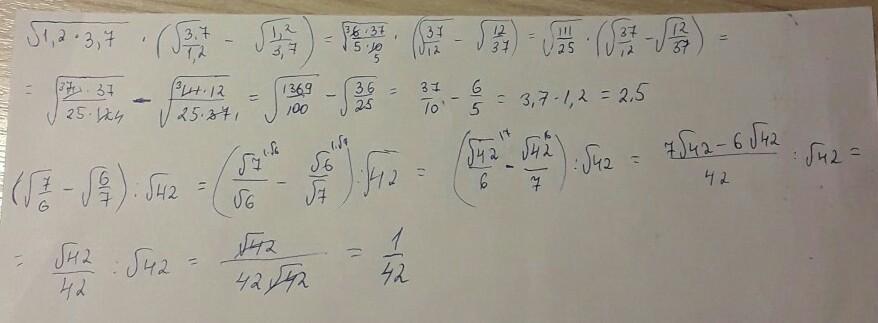 √1,2·3,7 · (√3,7/1,2 − √1,2/3,7) = √6·37/5·10 5 · (√37/12 − √12/37) = √111/25 · (√37/12 − √12/37) =
= √37 111·37/25·12 4 − √3 111·12/25·37 1 = √1369/100 − √36/25 = 37/10 − 6/5 = 3,7·1,2 = 2,5
(√7/6 − √6/7) : √42 = (√7/√6 − √6/√7) : √42 = (√42/6 − √42/7) : √42 = 7√42 − 6√42/42 : √42 =
= √42/42 : √42 = √42/42√42 = 1/42